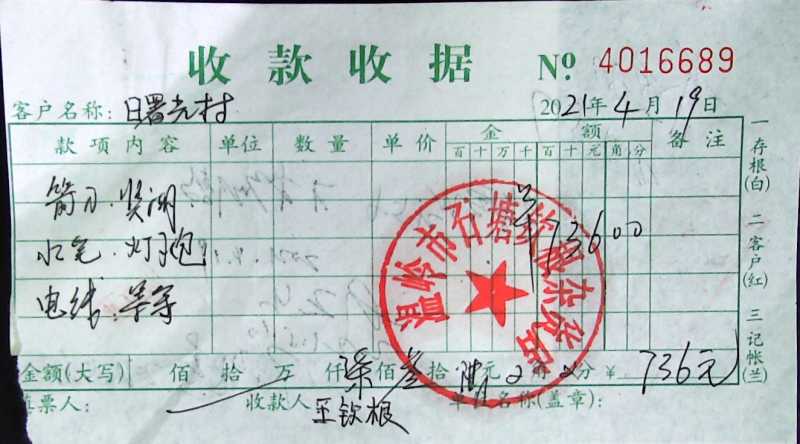 收款收据 No 4016689
客户名称：日曙光村 2021年4月19日
款项内容 单位 数量 单价 金额 备注
百十万千百十元角分
水笔．灯泡 73600
电线．等等
金额(大写) 佰拾万仟柒佰叁拾陆元0角0分 ¥ 736元
票人： 收款人 王钦根 单位名称(盖章)：
一存根(白) 二客户(红) 三记帐(兰)
温岭市石塘钦根杂货店